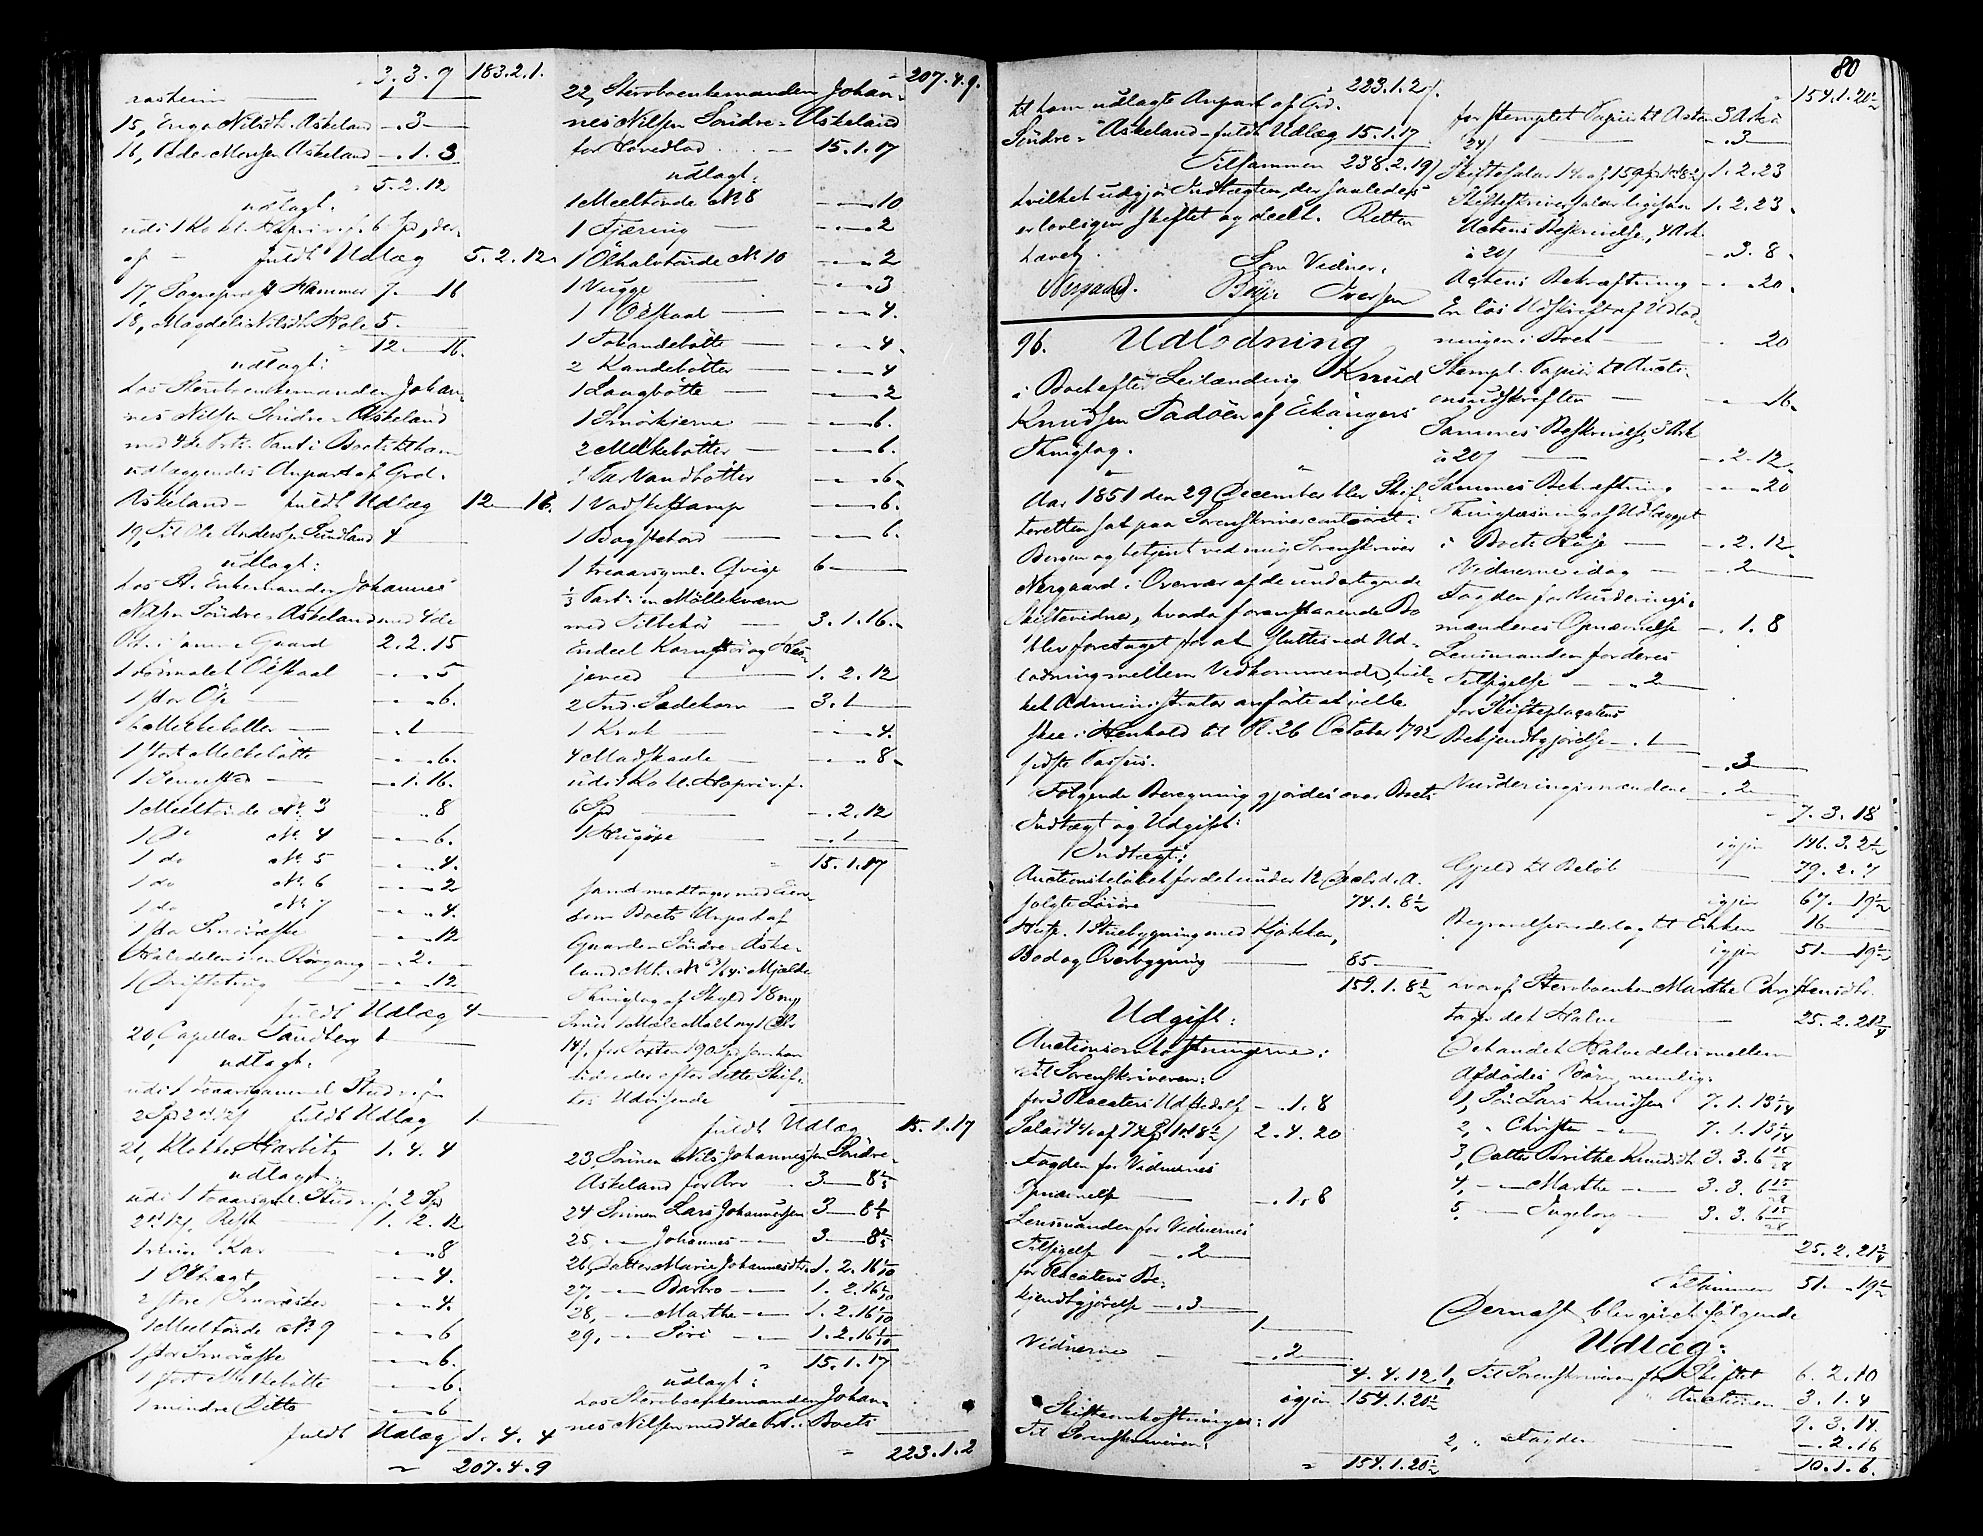 3. 3. 9 183. 2. 1.
15, Inga Nilsdtr. Askeland - . 3 -
16, Peder Monsen Askeland - . 1. 3
5. 2. 12
udlagt:
af - fuldt Udlæg 5. 2. 12.
17, Sogneprest Hammer 7. — 16
18, Magdeli Nilsdtr. Hole 5. —
12. — 16.
udlagt:
hos Sterboenkemanden Johan-
nes Nilsen Søndre-Askeland
med 4de Prts. Pant i Boets til ham
udlæggendes Anpart af Grd.
Askeland - fuldt Udlæg 12 — 16.
19, Til Ole Anders. Sundland 4 —
udlagt:
hos St. Enkemanden Johannes
Nilsen Søndre-Askeland med 4de
Prt. i samme Gaard 2. 2. 15
1 rosmalet Ølskaal - . - 5
1 stor Øse - . - 6.
2 Melkekoller - . 1
1 stort Melkebøtte - . - 6.
1 Sengested - . 1. 16.
1 Meeltønde No. 3 - . 8
1 do No. 4 - . - 6.
1 do No. 5 - . - 4.
1 do No. 6 - . - 2
1 do No. 7 - . - 4.
1 stor Smøræske - . - 12
Halvdelen i en Rørgang - . 2. -
- . - 12
fuldt Udlæg 4 —
20, Capellan Sandberg 1 —
udlagt:
2 Spd 2 ort 12 s fuldt Udlæg 1 —
21, Klokker Harbitz 1. 4. 4
udlagt:
udi 1 toaarsgml. Stud v. f. 2 Spd
2 ort 12 s, Rest 1. 2. 12
- . - 8
- . - 4.
2 store Smøræsker - . - 4.
1 Meeltønde No. 9 - . - 6
1 stor Smøræske - . - 6.
1 stort Melkebøtte - . - 6.
1 mindre Ditto - . - 6
fuldt Udlæg 1. 4. 4
207. 4. 9
207. 4. 9.
22, Sterboenkemanden Johan-
nes Nilsen Søndre-Askeland
for Hovedlod - 15. 1. 17
udlagt:
1 Meeltønde No. 8 - . — 10
1 Fjæring - . - 2
1 Ølhalvtønde No. 10 - . - 2
1 Vugge - . - 3
1 Ølskaal - . - 4.
1 Vandebøtte - . - 4.
2 Kandebøtter - . - 4
1 Langbøtte - . - 2
1 Smørkjerne - . - 6.
2 Melkebøtter - . - 6.
1 Par Vandbøtter - . - 6.
1 Vadskestamp - . - 6.
1 Bagstebord - . - 6.
1 treaarsgml. Qvige 6 —
1/3 Part i en Møllekværn
med Tilbehør 3. 1. 16.
Endeel Korn
1. 2. 12
2 Tnd. Sædekorn 3. 1
- . - 4.
4 Madskaale - . - 8
udi 1 Ko
6 Spd - . 2. 12
1 Hugøxe - . 1
15. 1. 17
samt modtages med Eien-
dom Boets Anpart af
Gaarden Søndre-Aske-
land Mtr. No. 63/64 i Mjelde
Thinglag af Skyld 18 mrk
fuldt Udlæg 15. 1. 17
23, Sønnen Nils Johannessen Søndre-
Askeland for Arv 3 — 8 4/5
24 Sønnen Lars Johannessen 3 — 8 4/5
25, — Johannes — 3 — 8 4/5
26, Datter Marie Johannesdtr. 1. 2. 16 4/10
27, — Barbro — 1. 2. 16 4/10
28, — Marthe — 1. 2. 16 4/10
29, — Siri — 1. 2. 16 4/10
15. 1. 17
udlagt:
hos Sterboenkemanden Johan-
nes Nilsen med 4de Prt. i Boets
223. 1. 2
80
223. 1. 2 s.
til ham udlagte Anpart af Grd.
Søndre-Askeland - fuldt Udlæg 15. 1. 17
Tilsammen 238. 2. 19 s
hvilket udgjør Indtægten, der saaledes
er lovligen skiftet og deelt. Retten
hævet.
Som Vidner:
Nergaard. Iversen
96. Udlodning
i Boet efter Leilænding Knud
Knudsen Tadøen af Ekangers
Thinglag.
Aar 1851 den 29 December blev Skif-
teretten sat paa Sorenskrivercontoiret i
Bergen og betjent ved mig Sorenskriver
Nergaard i Overvær af de undertegnede
Skiftevidner, hvorda foranstaaende Bo
blev foretaget for at sluttes ved Ud-
lodning mellem Vedkommende, hvil-
ket Administrator anførte at ville
skee i Henhold til Pl. 26 October 1792
sidste Passus.
Følgende Beregning gjordes over Boets
Indtægt og Udgift:
Indtægt:
Auctionsbeløbet for det under 12 Decbr. d. A.
solgte Løsøre 74. 1. 8 1/2
Huse: 1 Stuebygning med Kjøkken,
Bod og Overbygning 85 —
159. 1. 8 1/2
Udgift:
Auctionsomkostningerne:
til Sorenskriveren:
for 3 Placaters Udstedelse - . 1. 8
Salar 4 % af 74 Spd 1 ort 8 1/2 s 2. 4. 20
Fogden for Vidnernes
Opnævnelse - . 1. 8
Lensmanden for Vidnernes
Tilsigelse - . 2
for Placatens Be-
kjendtgjørelse - . 3
1 —
Vidnerne - . 2
4. 4. 12
igjen 154. 1. 20 1/2
Skifteomkostninger:
Til Sorenskriveren:
154. 1. 20 1/2
154. 1. 20 1/2
for stemplet Papir til Acten 3 Ark à
24 s - . 3 —
Skiftesalar 1 % af 159 Spd 1 ort 8 1/2 s 1. 2. 23
Skifteskriversalar ligesaa 1. 2. 23.
Actens Beskrivelse, 4 Ark
à 20 s - . 3. 8.
Actens Bekræftning - . - 20.
En løs Udskrift af Udlod-
ningen i Boet - . 20
Stempl. Papir til Aucti-
onsudskriften - . 16.
Sammes Beskrivelse, 3 Ark
à 20 s - . 2. 12.
Sammes Bekræftning - . - 20
Thinglæsning af Udlægget
i Boets Huse - . 2. 12.
Vidnerne idag - . 2 —
Fogden for Vurderings-
mændenes Opnævnelse - . 1. 8
Lensmanden for deres
Tilsigelse - . 2 —
for Skifteplacatens
Bekjendtgjørelse - . 1
- . 3 —
Vurderingsmændene - . 2 —
7. 3. 18
igjen 146. 3. 2 1/2
Gjeld til Beløb 79. 2. 7
igjen 67. — 19 1/2
Begravelsesudelag til Enken 16 —
igjen 51. — 19 1/2
hvoraf Sterboenken Marthe Christensdtr.
tager det Halve 25. 2. 21 3/4
Det andet Halve deles mellem
Afdødes Børn, nemlig:
1, Søn Lars Knudsen 7. 1. 13 5/14
2, " Christen — 7. 1. 13 5/14
3, Datter Brithe Knudsdtr. 3. 3. 6 19/28
4, — Marthe — 3. 3. 6 19/28
5, — Ingeborg — 3. 3. 6 19/28
25. 2. 21 3/4
Tilsammen 51. — 19 1/2
Dernæst blev gjort følgende
Udlæg:
1, Til Sorenskriveren for Skiftet 6. 2. 10
" Auctionen 3. 1. 4
9. 3. 14
2, " Fogden - . 2. 16
10. 1. 6.